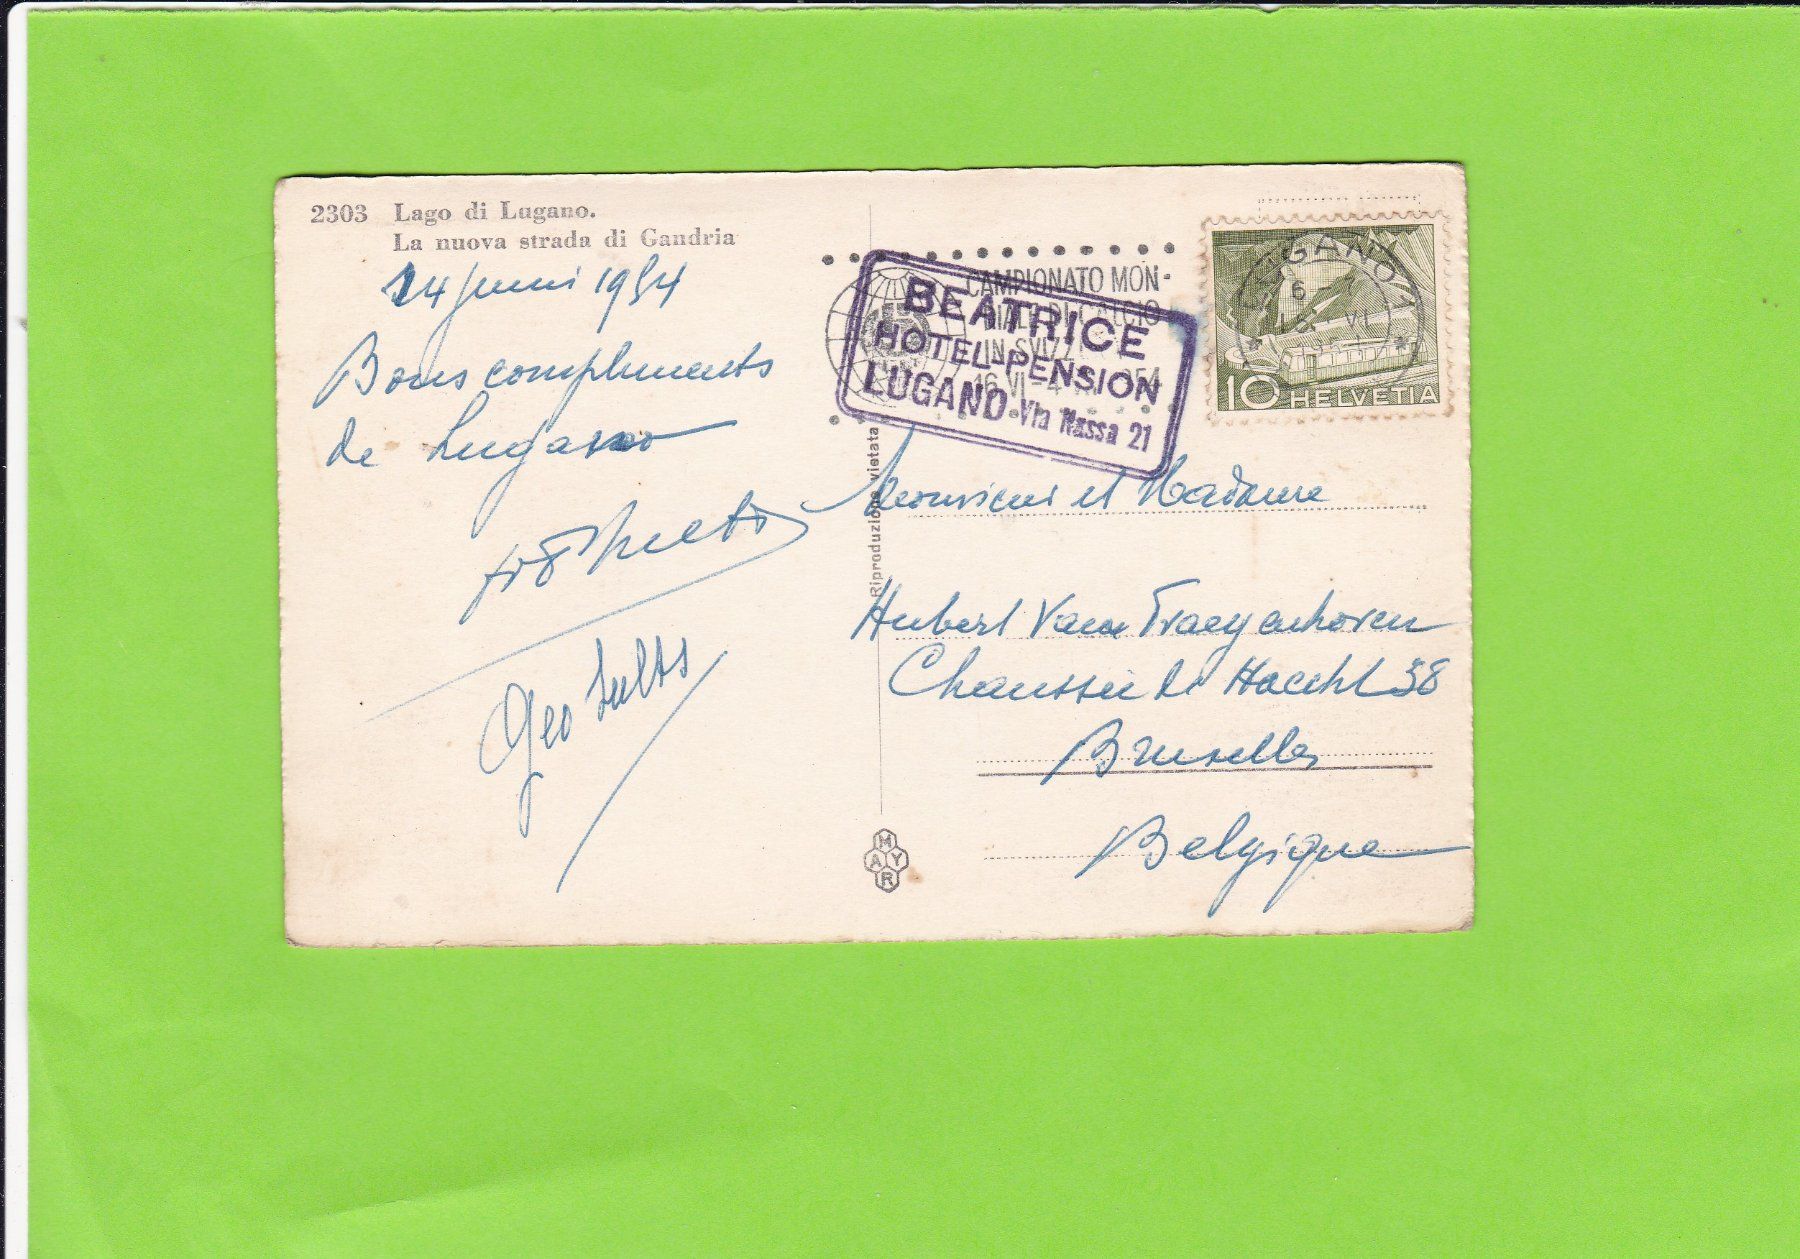 2303 Lago di Lugano.
La nuova strada di Gandria
14 juni 1954
Bons compliments
de Lugano
Geo
Riproduzione vietata
MAYR
CAMPIONATO MON-
DIALE DI CALCIO
IN SVIZZ
16.VI-4. 954
BEATRICE
HOTEL-PENSION
LUGANO Via Nassa 21
LUGANO 1
VI
10 HELVETIA
Monsieur et Madame
Hubert Van
Chaussée de Haecht 38
Bruxelles
Belgique